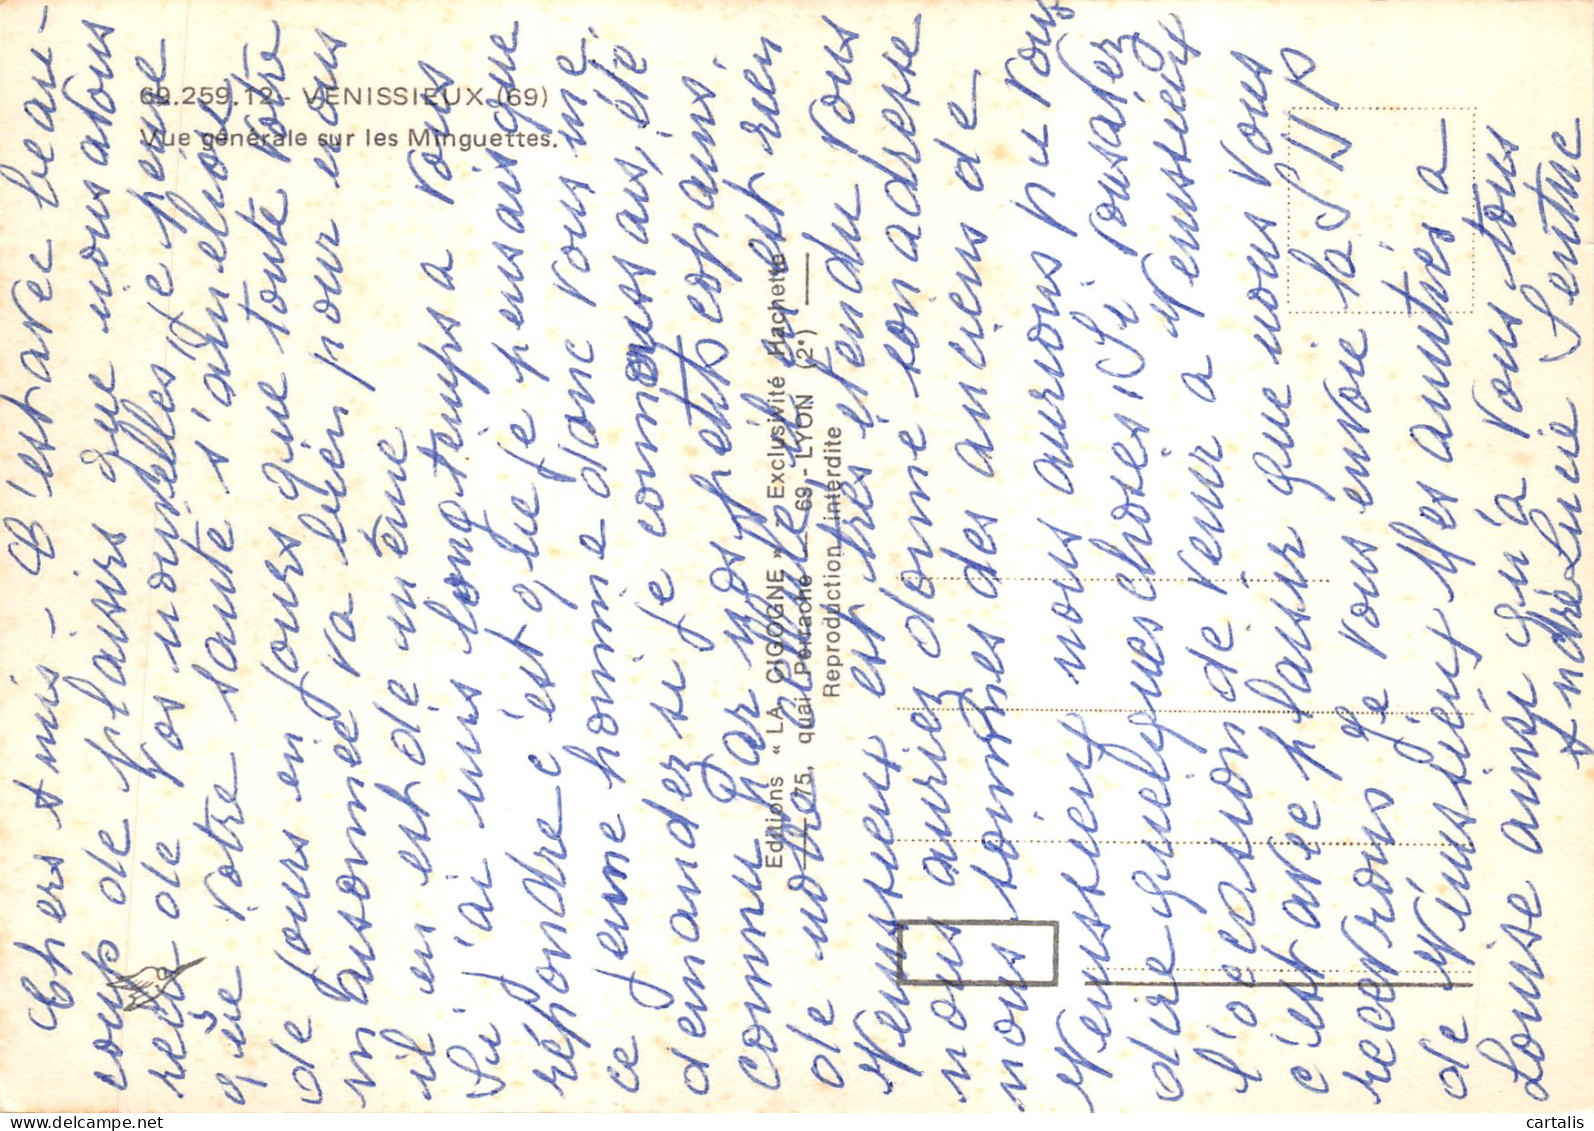 69.259.12 - VENISSIEUX (69)
Vue générale sur les Minguettes.
Chers Amis - C'est avec beau-
coup de plaisirs que nous avons
reçu de vos nouvelles Je pense
que votre santé s'améliore
de jours en jours que toute votre
maisonnée va bien pour nous
il en est de même
Si j'ai mis longtemps a vous
répondre c'est que je pensais que
ce jeune homme donc vous me
demandez si je connaissais, été
connu par nos petits copains.
de notre cité est rien
Venissieux est très étendu Vous
nous auriez donné son adresse
nous sommes des anciens de
Venissieux nous aurions pu vous
dire quelques choses. Si vous avez
l'occasion de venir a Venissieux
c'est avec plaisir que nous vous
recevrons Je vous envoie la
de Vénissieux Mes amitiés a
Louise ainsi qu'à vous tous
André Lucie
Editions « LA CIGOGNE » - Exclusivité Hachette
75, quai Perrache - 69 - LYON (2e)
Reproduction interdite
cartalis Delcampe.net